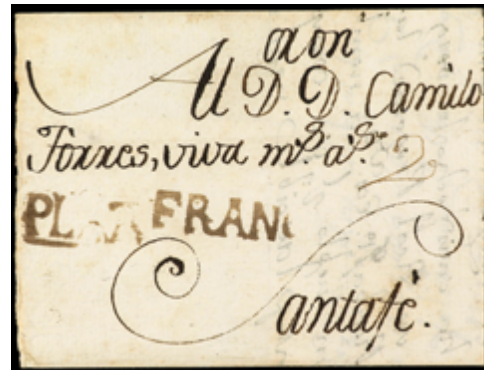 Al D. D. Camilo
Torres, viva m.s a.s
FRAN
Santafé.